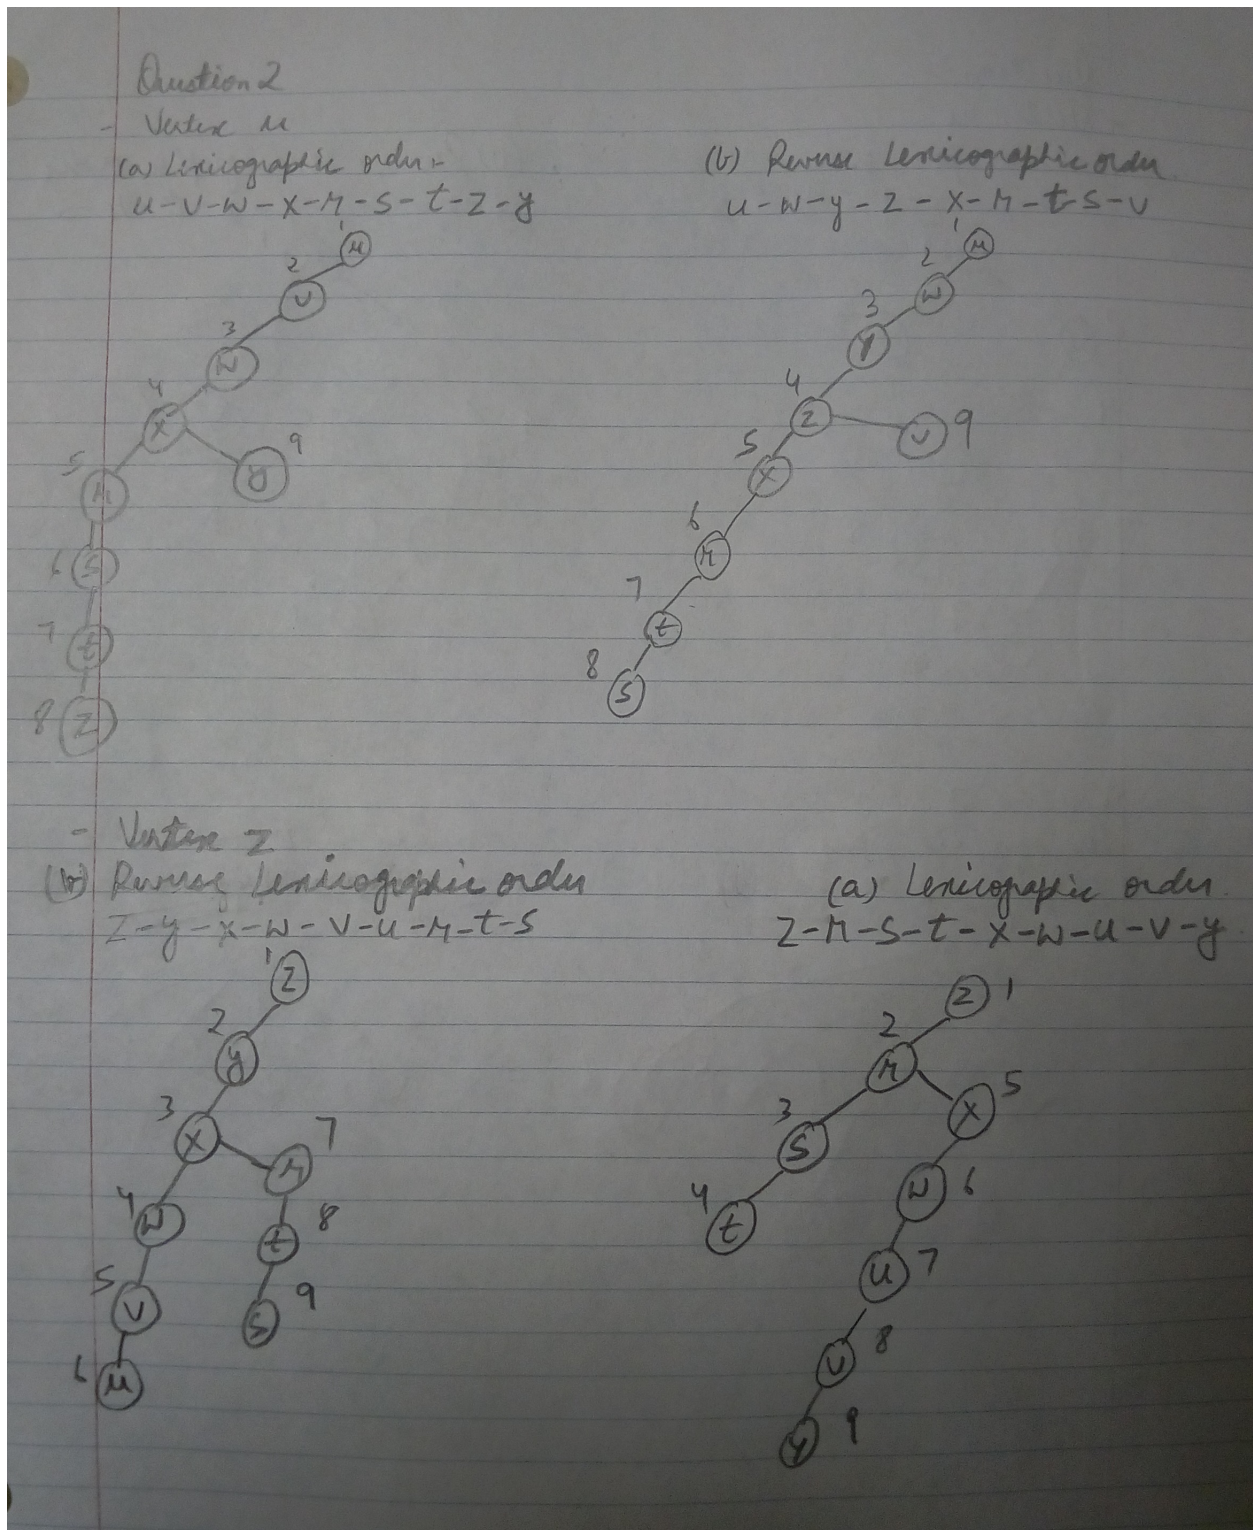 Question 2
- Vertex u
(a) Lexicographic order:-
u-v-w-x-r-s-t-z-y
1 u
2 v
3 w
4 x
5 r
y 9
6 s
7 t
8 z
(b) Reverse Lexicographic order
u-w-y-z-x-r-t-s-v
1 u
2 w
3 y
4 z
v 9
5 x
6 r
7 t
8 s
- Vertex z
(b) Reverse Lexicographic order
z-y-x-w-v-u-r-t-s
1 z
2 y
3 x
r 7
4 w
t 8
5 v
s 9
6 u
(a) Lexicographic order.
z-r-s-t-x-w-u-v-y
z 1
2 r
x 5
3 s
w 6
4 t
u 7
v 8
y 9